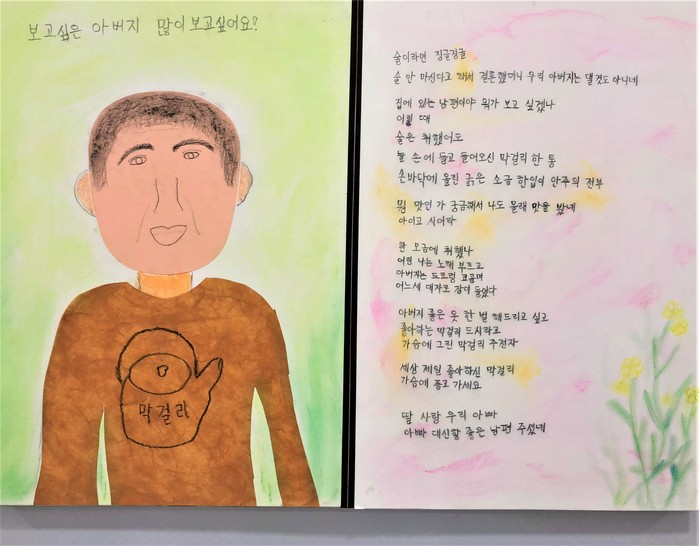 보고싶은 아버지 많이 보고싶어요?
막걸리
술이라면 징글징글
술 안 마신다고 해서 결혼했더니 우리 아버지는 댈것도 아니네
집에 있는 남편이야 뭐가 보고 싶겠나
어릴 때
술은 취했어도
늘 손에 들고 들어오신 막걸리 한 통
손바닥에 올린 굵은 소금 한입이 안주의 전부
뭔 맛인 가 궁금해서 나도 몰래 맛을 봤네
아이고 시어라
한 모금에 취했나
어린 나는 노래 부르고
아버지는 드르렁 코골며
어느새 대자로 잠이 들었다
아버지 좋은 옷 한 벌 해드리고 싶고
좋아하는 막걸리 드시라고
가슴에 그린 막걸리 주전자
세상 제일 좋아하신 막걸리
가슴에 품고 가세요
딸 사랑 우리 아빠
아빠 대신할 좋은 남편 주셨네